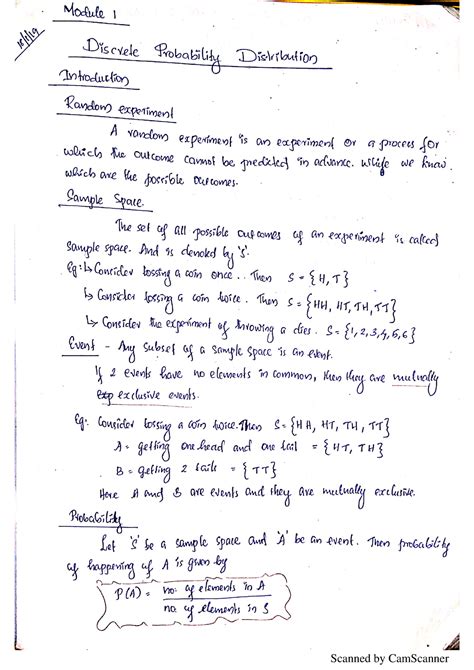 Module 1
Discrete Probability Distribution
Introduction
Random experiment
A random experiment is an experiment or a process for
which the outcome cannot be predicted in advance. While we know
which are the possible outcomes.
Sample Space
The set of all possible outcomes of an experiment is called
sample space. And is denoted by 'S'.
Eg:- ↳ Consider tossing a coin once. Then S = {H, T}
↳ Consider tossing a coin twice. Then S = {HH, HT, TH, TT}
↳ Consider the experiment of throwing a dies. S = {1, 2, 3, 4, 5, 6}
Event - Any subset of a sample space is an event.
If 2 events have no elements in common, then they are mutually
exclusive events.
Eg: Consider tossing a coin twice. Then S = {HH, HT, TH, TT}
A = getting one head and one tail = {HT, TH}
B = getting 2 tails = {TT}
Here A and B are events and they are mutually exclusive.
Probability
Let 'S' be a sample space and 'A' be an event. Then probability
of happening of A is given by
P(A) = no: of elements in A
no. of elements in S
Scanned by CamScanner